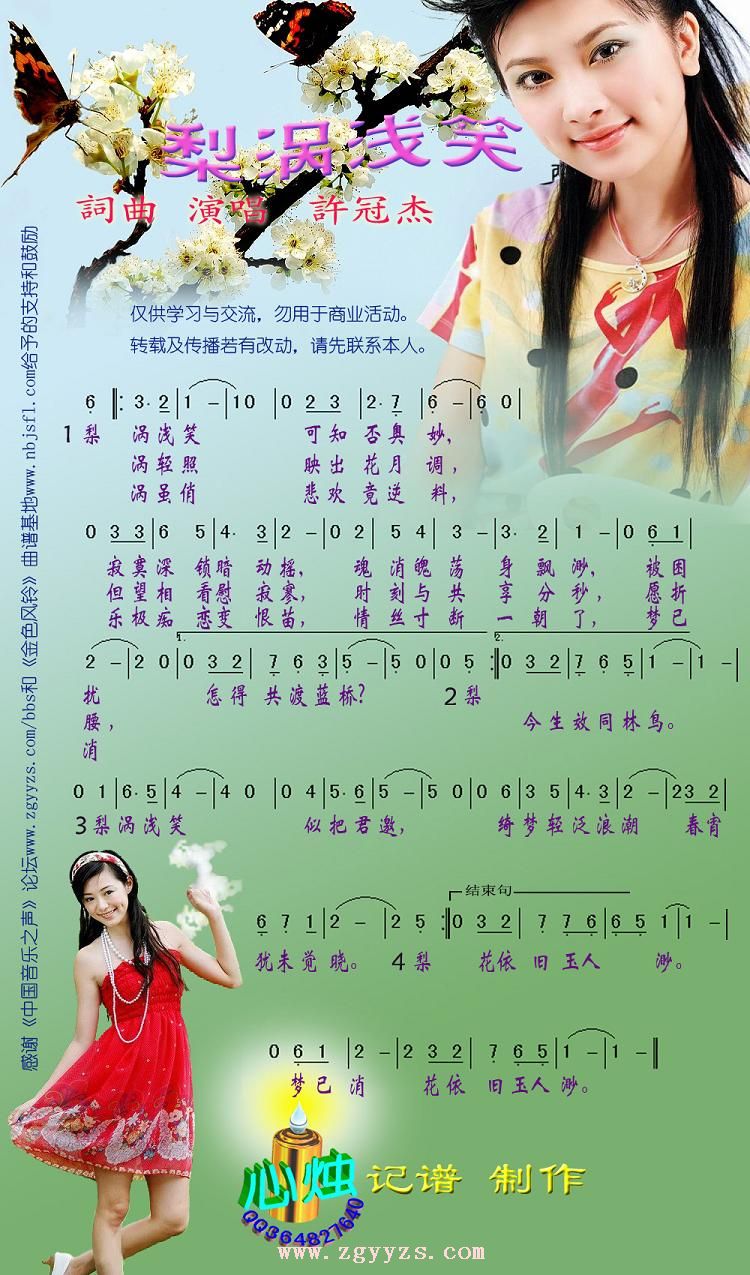 梨涡浅笑
詞曲 演唱 許冠杰
仅供学习与交流，勿用于商业活动。
转载及传播若有改动，请先联系本人。
感谢《中国音乐之声》论坛www.zgyyzs.com/bbs和《金色风铃》曲谱基地www.nbjsfl.com给予的支持和鼓励
6 ‖: 3· 2 | 1 - | 1 0 | 0 2 3 | 2· 7 | 6 - | 6 0 |
1梨 涡浅笑 可知 否奥 妙，
涡轻照 映出 花月 调，
涡虽俏 悲欢 竟逆 料，
0 3 3 | 6 5 | 4· 3 | 2 - | 0 2 | 5 4 | 3 - | 3· 2 | 1 - | 0 6 1 |
寂寞深 锁暗 动摇， 魂 消魄 荡 身 飘 渺， 被困
但望相 看慰 寂寥， 时 刻与 共 享 分 秒， 愿折
乐极痴 恋变 恨苗， 情 丝寸 断 一 朝 了， 梦已
2 - | 2 0 | 1. 0 3 2 | 7 6 3 | 5 - | 5 0 | 0 5 :‖ 2. 0 3 2 | 7 6 5 | 1 - | 1 - |
扰 怎得 共渡蓝桥？ 2梨
腰， 今生效同林鸟。
消
0 1 | 6· 5 | 4 - | 4 0 | 0 4 | 5· 6 | 5 - | 5 0 | 0 6 | 3 5 | 4· 3 | 2 - | 2 3 2 |
3梨涡浅笑 似把君邀， 绮梦轻泛浪潮 春宵
6 7 1 | 2 - | 2 5 :‖ 结束句 0 3 2 | 7 7 6 | 6 5 | 1 - |
犹未觉晓。 4梨 花依 旧玉人 渺。
0 6 1 | 2 - | 2 3 2 | 7 6 5 | 1 - | 1 - ‖
梦已 消 花依 旧玉人渺。
心烛 记谱 制作
QQ364827640
www.zgyyzs.com